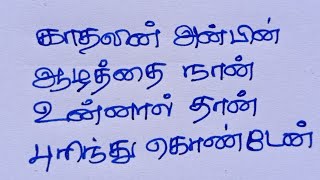 காதலின் அன்பின்
ஆழத்தை நான்
உன்னால் தான்
புரிந்து கொண்டேன்